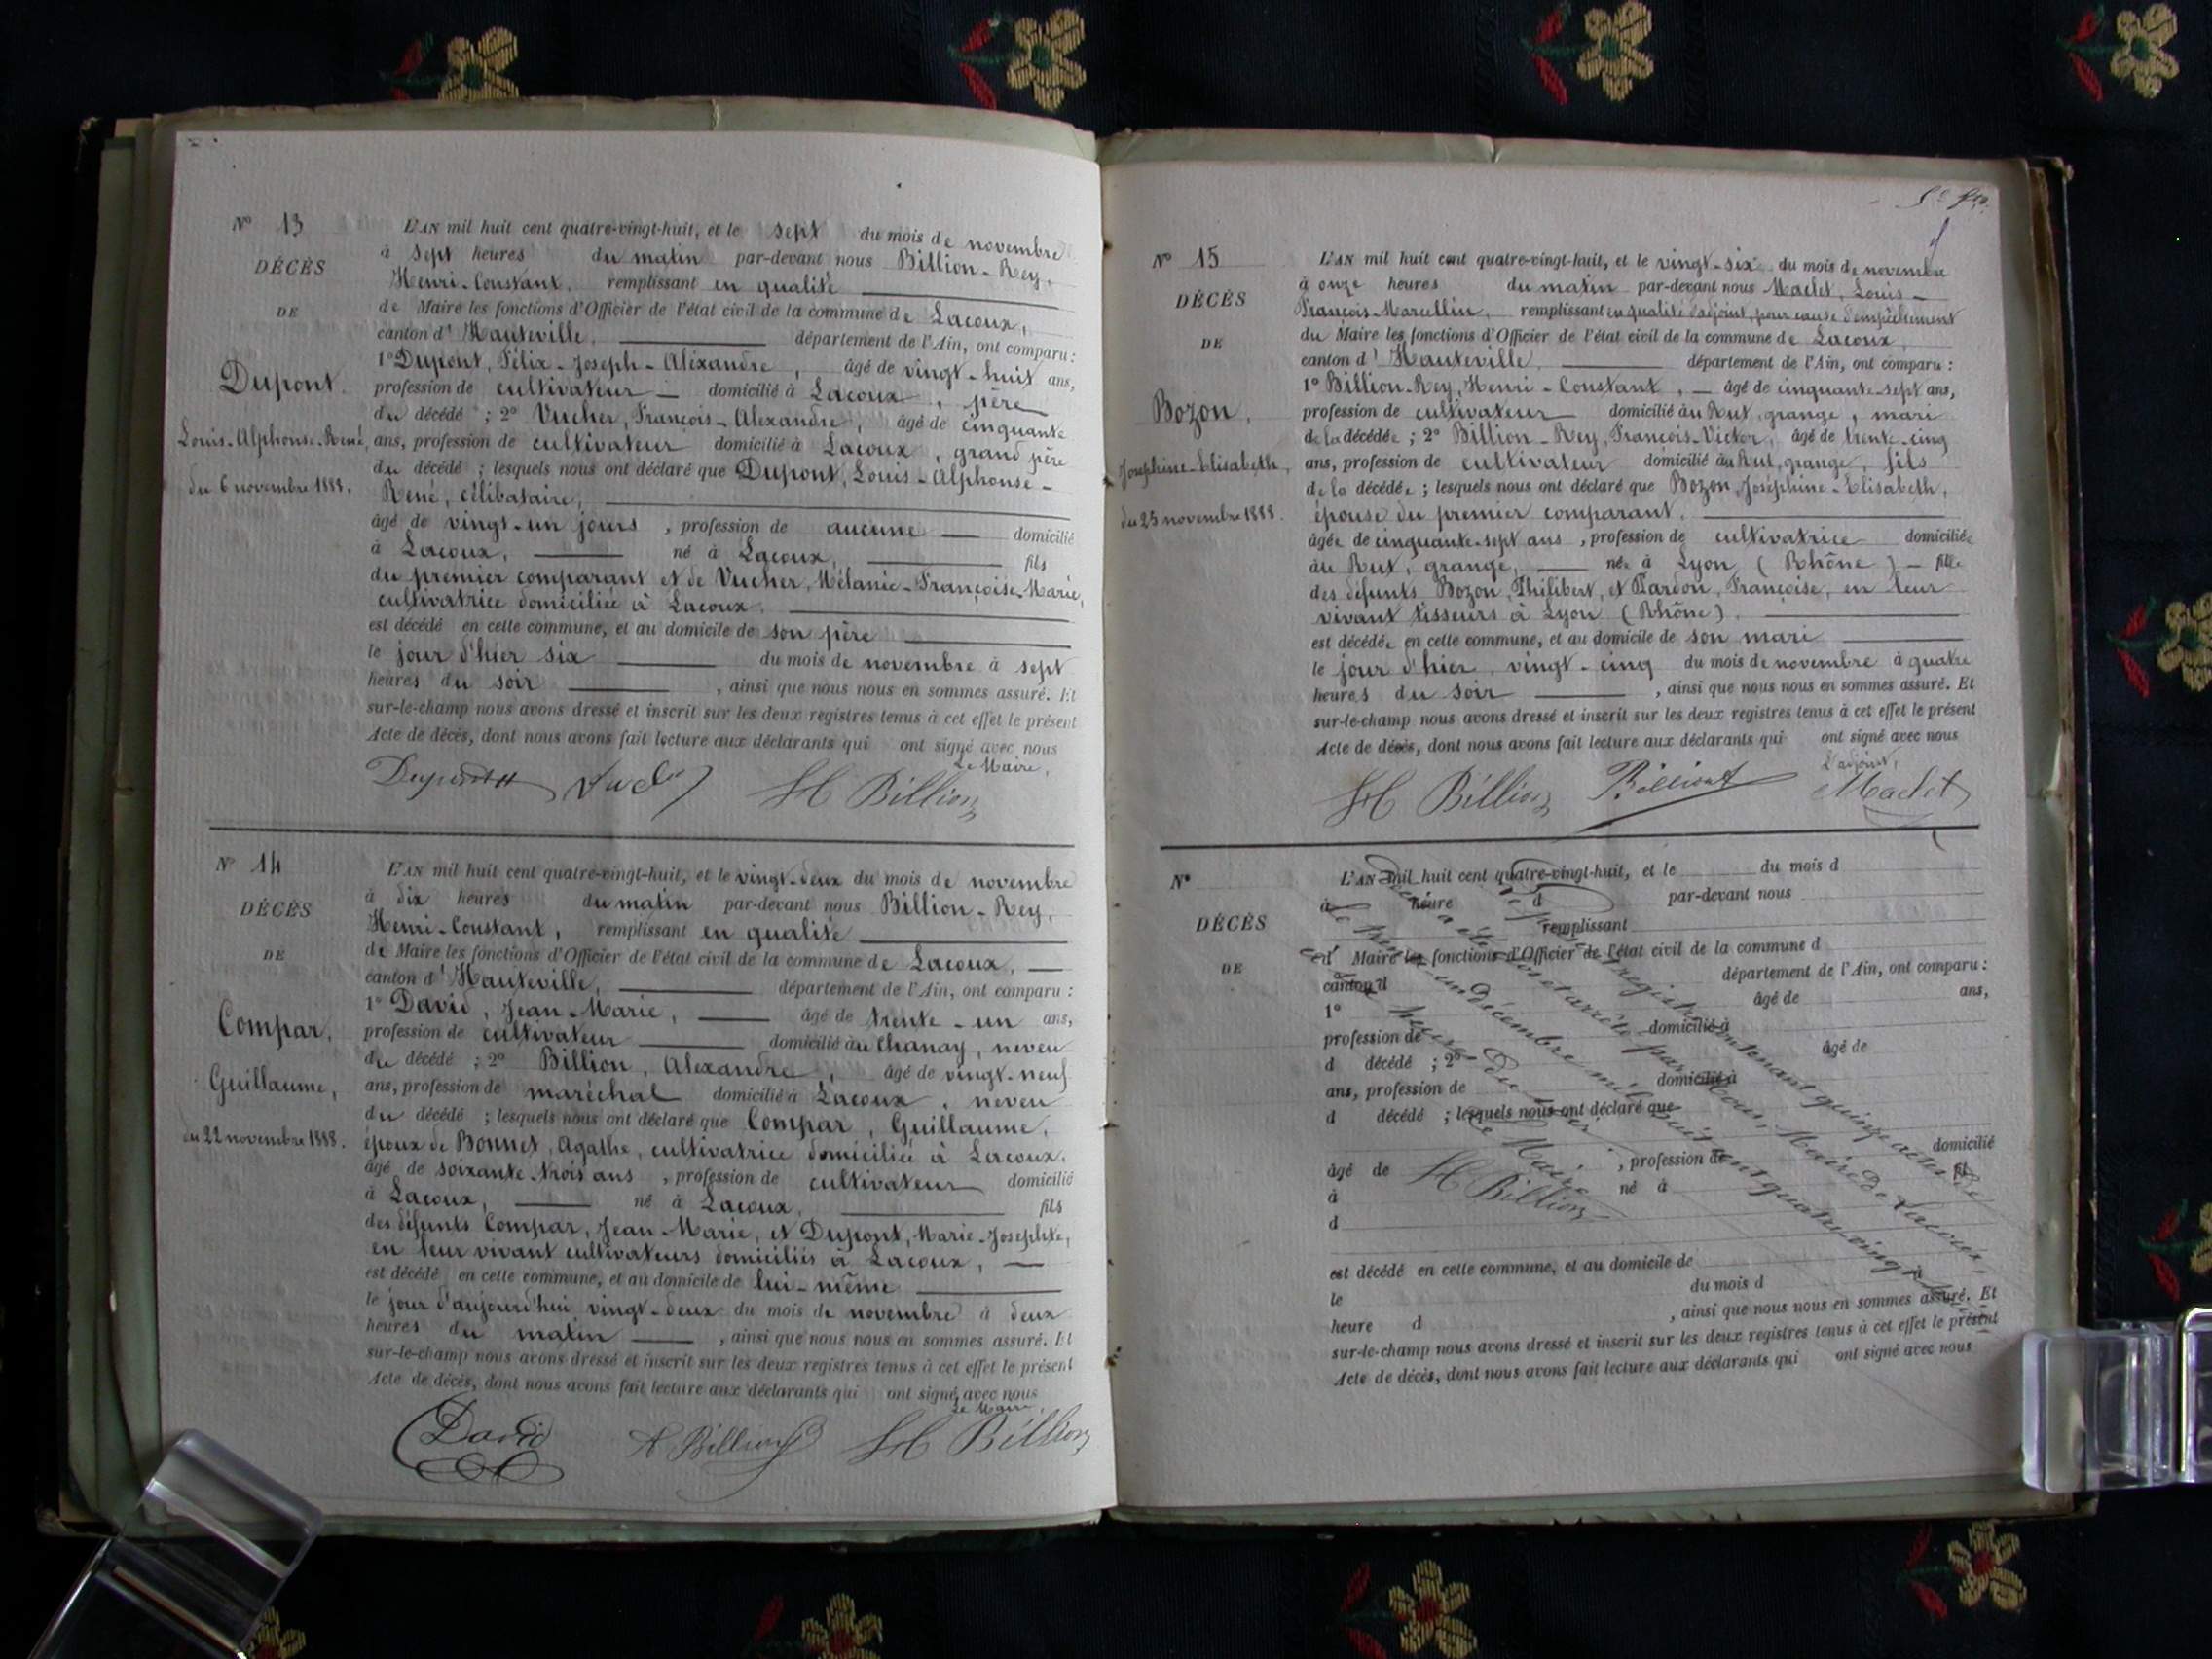 N° 13
DÉCÈS
DE
Dupont.
Louis-Alphonse-René,
du 6 novembre 1888.
L'AN mil huit cent quatre-vingt-huit, et le sept du mois de novembre
à sept heures du matin par-devant nous Billion-Rey,
Henri-Constant, remplissant en qualité
de Maire les fonctions d'Officier de l'état civil de la commune de Lacoux,
canton d'Hauteville, département de l'Ain, ont comparu :
1° Dupont, Félix-Joseph-Alexandre, âgé de vingt-huit ans,
profession de cultivateur domicilié à Lacoux, père
du décédé ; 2° Vucher, François-Alexandre, âgé de cinquante
ans, profession de cultivateur domicilié à Lacoux, grand père
du décédé ; lesquels nous ont déclaré que Dupont, Louis-Alphonse-
René, célibataire,
âgé de vingt-un jours, profession de aucune domicilié
à Lacoux, né à Lacoux, fils
du premier comparant et de Vucher, Mélanie-Françoise-Marie,
cultivatrice domiciliée à Lacoux.
est décédé en cette commune, et au domicile de son père
le jour d'hier six du mois de novembre à sept
heures du soir, ainsi que nous nous en sommes assuré. Et
sur-le-champ nous avons dressé et inscrit sur les deux registres tenus à cet effet le présent
Acte de décès, dont nous avons fait lecture aux déclarants qui ont signé avec nous
Le Maire,
Dupont H Billion
N° 14
DÉCÈS
DE
Compar,
Guillaume,
du 22 novembre 1888.
L'AN mil huit cent quatre-vingt-huit, et le vingt-deux du mois de novembre
à dix heures du matin par-devant nous Billion-Rey,
Henri-Constant, remplissant en qualité
de Maire les fonctions d'Officier de l'état civil de la commune de Lacoux,
canton d'Hauteville, département de l'Ain, ont comparu :
1° David, Jean-Marie, âgé de trente-un ans,
profession de cultivateur domicilié au Chanay, neveu
du décédé ; 2° Billion, Alexandre, âgé de vingt-neuf
ans, profession de maréchal domicilié à Lacoux, neveu
du décédé ; lesquels nous ont déclaré que Compar, Guillaume,
époux de Bonnet, Agathe, cultivatrice domiciliée à Lacoux.
âgé de soixante-trois ans, profession de cultivateur domicilié
à Lacoux, né à Lacoux, fils
des défunts Compar, Jean-Marie, et Dupont, Marie-Josephte,
en leur vivant cultivateurs domiciliés à Lacoux,
est décédé en cette commune, et au domicile de lui-même
le jour d'aujourd'hui vingt-deux du mois de novembre à deux
heures du matin, ainsi que nous nous en sommes assuré. Et
sur-le-champ nous avons dressé et inscrit sur les deux registres tenus à cet effet le présent
Acte de décès, dont nous avons fait lecture aux déclarants qui ont signé avec nous
Le Maire,
David A Billion H Billion
N° 15
DÉCÈS
DE
Bozon,
Joséphine-Elisabeth,
du 25 novembre 1888.
L'AN mil huit cent quatre-vingt-huit, et le vingt-six du mois de novembre
à onze heures du matin par-devant nous Maclet, Louis-
François-Marcellin, remplissant en qualité d'adjoint, pour cause d'empêchement
du Maire les fonctions d'Officier de l'état civil de la commune de Lacoux,
canton d'Hauteville, département de l'Ain, ont comparu :
1° Billion-Rey, Henri-Constant, âgé de cinquante-sept ans,
profession de cultivateur domicilié au Rut, grange, mari
de la décédée ; 2° Billion-Rey, François-Victor, âgé de trente-cinq
ans, profession de cultivateur domicilié au Rut, grange, fils
de la décédée ; lesquels nous ont déclaré que Bozon, Joséphine-Elisabeth,
épouse du premier comparant,
âgée de cinquante-sept ans, profession de cultivatrice domiciliée
au Rut, grange, née à Lyon (Rhône) fille
des défunts Bozon, Philibert, et Pardon, Françoise, en leur
vivant tisseurs à Lyon (Rhône).
est décédée en cette commune, et au domicile de son mari
le jour d'hier, vingt-cinq du mois de novembre à quatre
heures du soir, ainsi que nous nous en sommes assuré. Et
sur-le-champ nous avons dressé et inscrit sur les deux registres tenus à cet effet le présent
Acte de décès, dont nous avons fait lecture aux déclarants qui ont signé avec nous
L'adjoint,
H Billion Billiont Maclet
N°
DÉCÈS
DE
L'AN mil huit cent quatre-vingt-huit, et le du mois d
à heure d par-devant nous
remplissant
d Maire les fonctions d'Officier de l'état civil de la commune d
canton d département de l'Ain, ont comparu :
1° âgé de ans,
profession de domicilié à
d décédé ; 2° âgé de
ans, profession de domicilié à
d décédé ; lesquels nous ont déclaré que
âgé de , profession de domicilié
à né à fil
d
est décédé en cette commune, et au domicile de
le du mois d à
heure d , ainsi que nous nous en sommes assuré. Et
sur-le-champ nous avons dressé et inscrit sur les deux registres tenus à cet effet le présent
Acte de décès, dont nous avons fait lecture aux déclarants qui ont signé avec nous
le présent registre contenant quinze actes de
décès a été clos et arrêté par Nous, Maire de Lacoux,
le trente-un décembre mil huit cent quatre-vingt-huit
Le Maire
H Billion